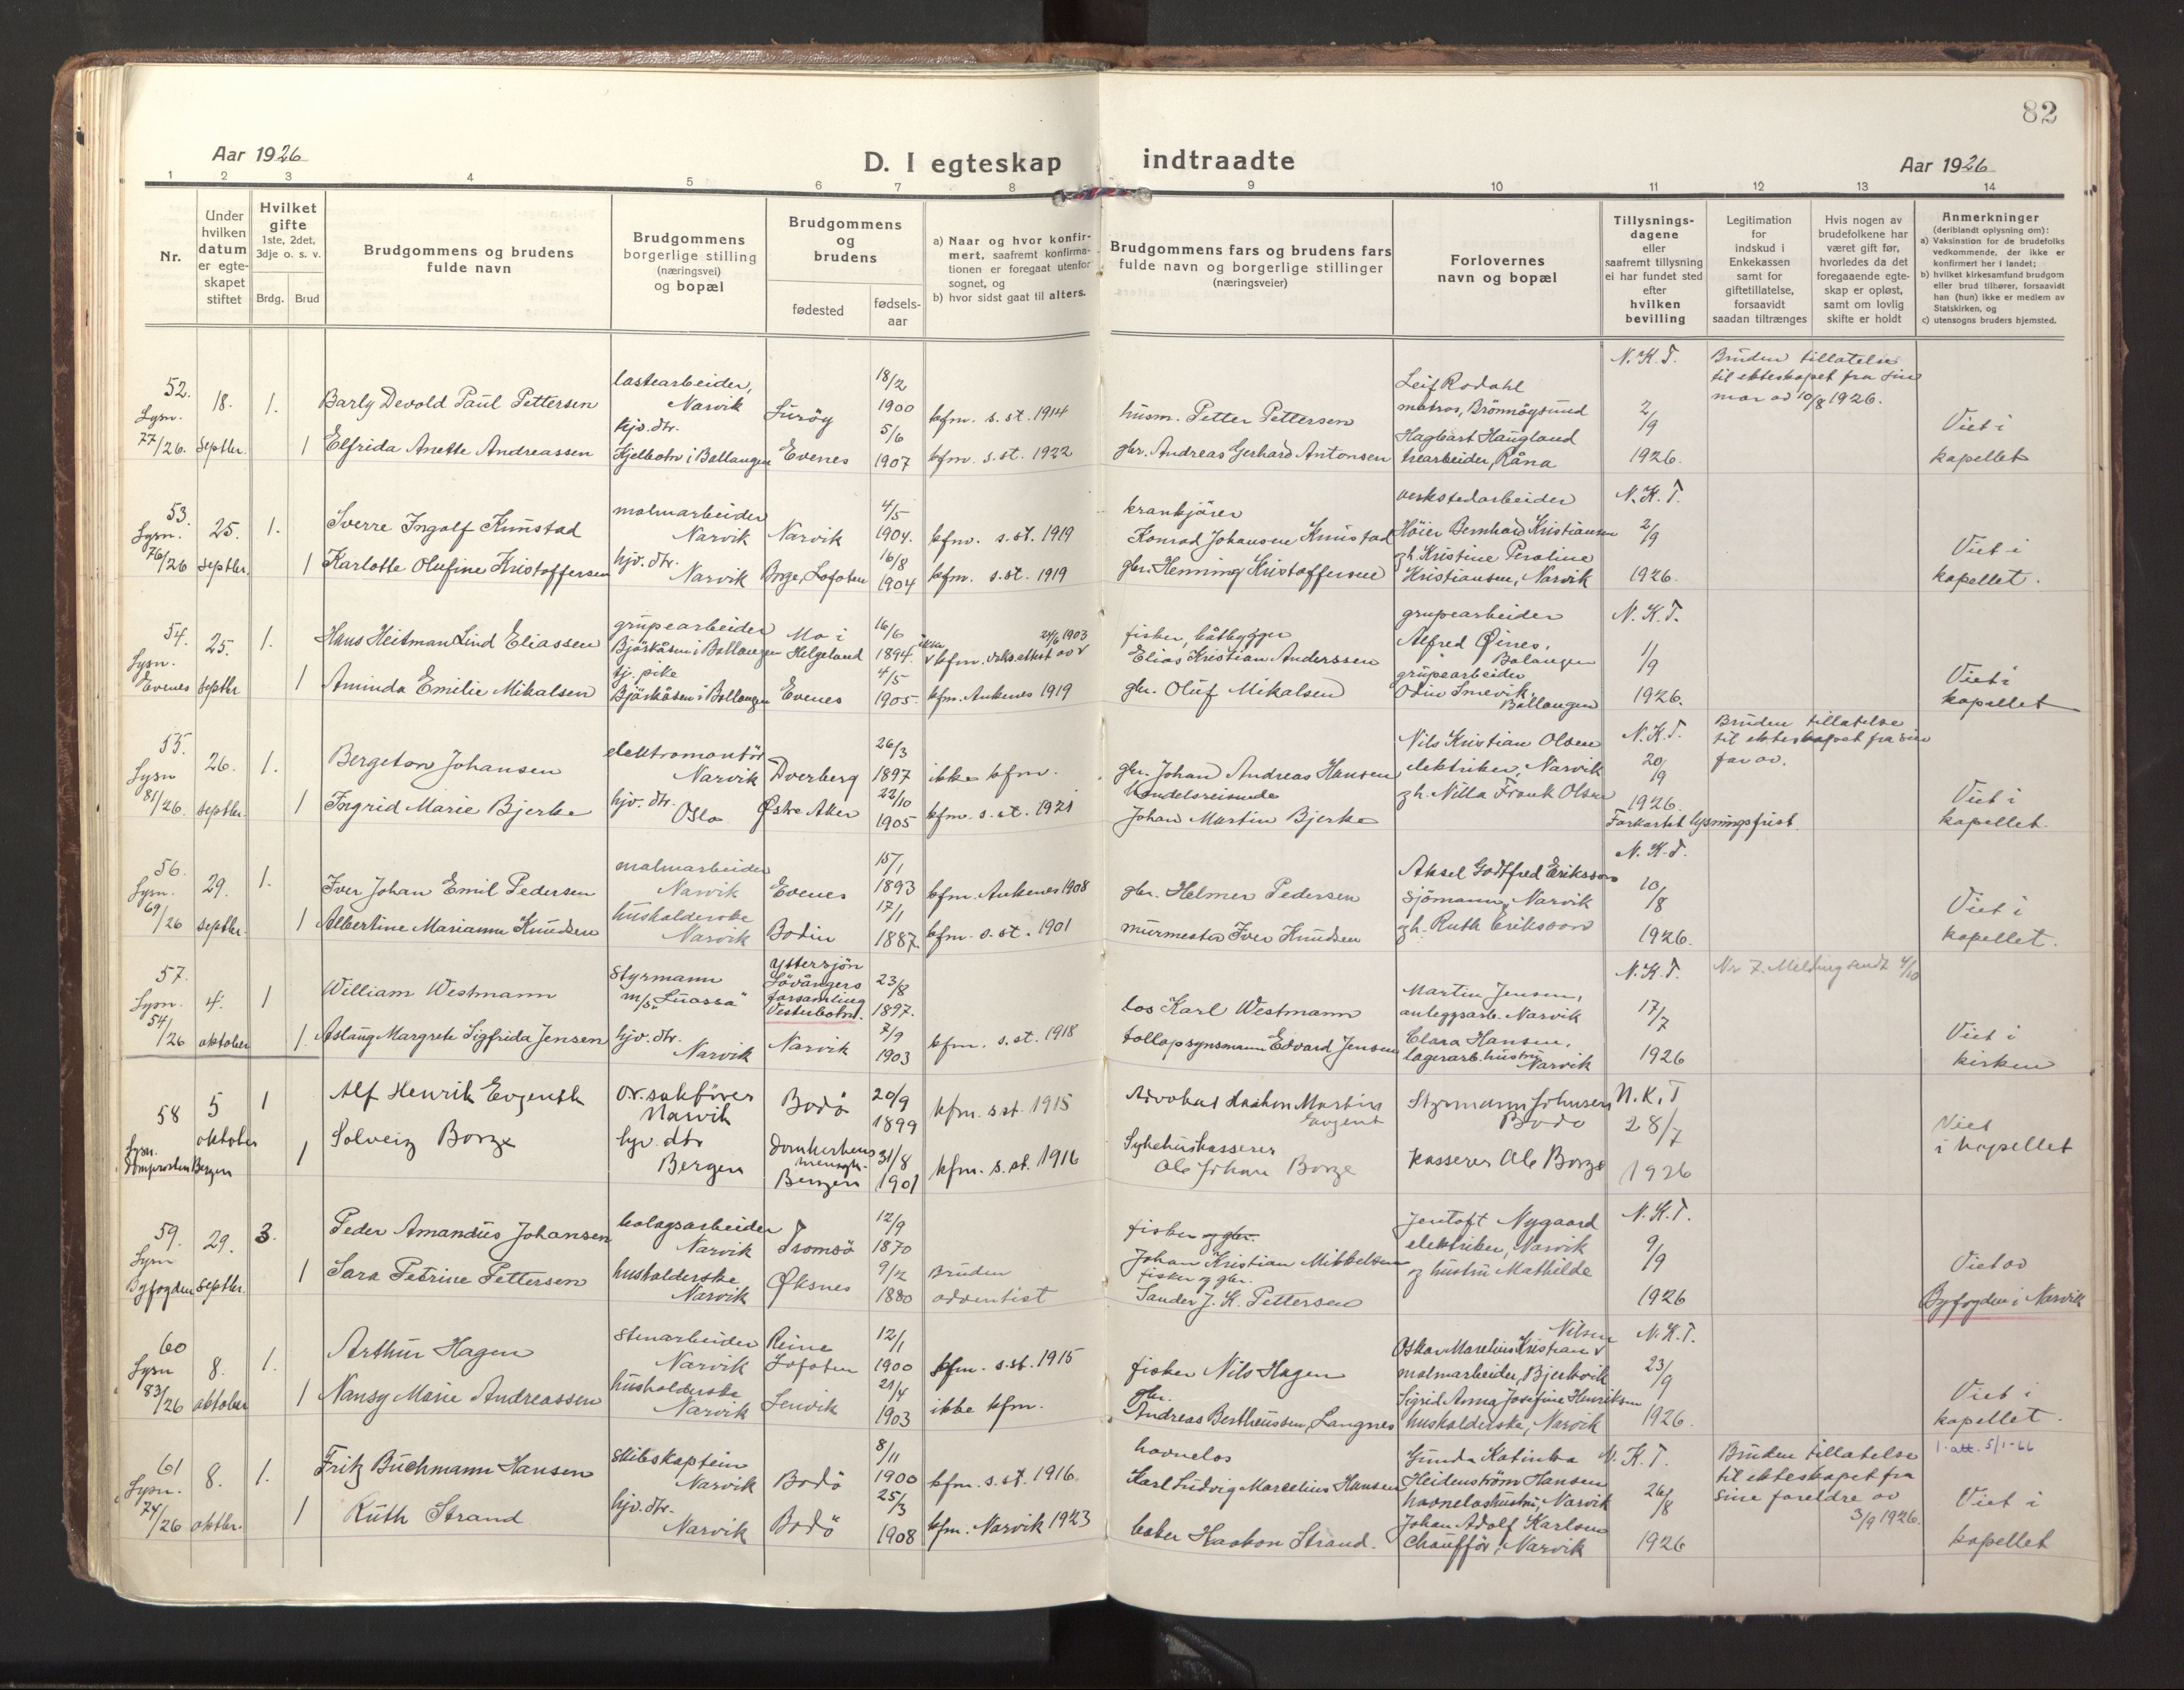 82
Aar 1926
D. I egteskap indtraadte
Aar 1926
1 2 3 4 5 6 7 8 9 10 11 12 13 14
Nr.
Under hvilken datum er egteskapet stiftet
Hvilket gifte
1ste, 2det, 3dje o. s. v.
Brdg. Brud
Brudgommens og brudens fulde navn
Brudgommens borgerlige stilling (næringsvei) og bopæl
Brudgommens og brudens
fødested
fødsels-aar
a) Naar og hvor konfirmert, saafremt konfirmationen er foregaat utenfor sognet, og
b) hvor sidst gaat til alters.
Brudgommens fars og brudens fars fulde navn og borgerlige stillinger (næringsveier)
Forlovernes navn og bopæl
Tillysningsdagene eller saafremt tillysning ei har fundet sted efter hvilken bevilling
Legitimation for indskud i Enkekassen samt for giftetillatelse, forsaavidt saadan tiltrænges
Hvis nogen av brudefolkene har været gift før, hvorledes da det foregaaende egteskap er opløst, samt om lovlig skifte er holdt
Anmerkninger (deriblandt oplysning om):
a) Vaksination for de brudefolks vedkommende, der ikke er konfirmert her i landet;
b) hvilket kirkesamfund brudgom eller brud tilhører, forsaavidt han (hun) ikke er medlem av Statskirken, og
c) utensogns bruders hjemsted.
52. Lysn. 77/26. 18. Septbr. 1.
Barly Devold Paul Pettersen
lastearbeider, Narvik
Lurøy
18/2 1900
kfm. s. st. 1914
husm. Petter Pettersen
Leif Rodahl matros, Brönnöysund
N. K. T. 2/9 1926.
Bruden tillatelse til ekteskapet fra sin mor av 10/8 1926.
Viet i kapellet
1 Elfrida Anette Andreassen
hjv. dtr. Kjelbotn i Ballangen
Evenes
5/6 1907
kfm. s. st. 1922
gbr. Andreas Gerhard Antonsen
Hagbart Haugland trearbeider, Råna
53. Lysn. 76/26 25. septbr. 1.
Sverre Ingolf Knustad
malmarbeider Narvik
Narvik
4/5 1904.
kfm. s. st. 1919
krankjörer Konrad Johansen Knustad
verkstedarbeider Höier Bernhard Kristiansen
N. K. T. 2/9 1926.
Viet i kapellet.
1 Karlotte Olufine Kristoffersen
hjv. dtr. Narvik
Borge, Lofoten
16/8 1904
kfm. s. st. 1919
gbr. Henning Kristoffersen
gh. Kristine Peroline Kristiansen, Narvik
54. Lysn. Evenes 25. septbr 1.
Hans Heitman Lind Eliassen
grupearbeider Bjørkåsen i Ballangen
Mo i Helgeland
16/6 1894.
ikke kfm. vaks. attest av 24/6 1903
fisker, båtbygger Elias Kristian Anderssen
grupearbeider Alfred Øines, Balangen
N. K. T. 1/9 1926.
Viet i kapellet
1 Aminda Emilie Mikalsen
tj. pike Bjørkåsen i Ballangen
Evenes
4/5 1905.
kfm. Ankenes 1919
gbr. Oluf Mikalsen
grupearbeider Odin Smevik, Ballangen
55. Lysn 81/26. 26. septbr. 1.
Bergeton Johansen
elektromontör Narvik
Dverberg
26/3 1897
ikke kfm.
gbr. Johan Andreas Hansen
Nils Kristian Olsen elektriker, Narvik
N. K. T. 20/9 1926.
Forkortet lysningsfrist.
Bruden tillatelse til ekteskapet fra sin far av.
Viet i kapellet.
1 Ingrid Marie Bjerke
hjv. dtr. Oslo
Østre Aker
22/10 1905
kfm. s. st. 1921
handelsreisende Johan Martin Bjerke
gh. Nilla Frank Olsen
56. Lysn. 69/26 29. septbr. 1.
Iver Johan Emil Pedersen
malmarbeider Narvik
Evenes
15/1 1893
kfm. Ankenes 1908
gbr. Helmer Pedersen
Aksel Godtfred Eriksson sjömann, Narvik
N. K. T. 10/8 1926.
Viet i kapellet.
1 Albertine Marianne Knudsen
husholderske Narvik
Bodin
17/1 1887.
kfm. s. st. 1901
murmester Iver Knudsen
gh. Ruth Eriksson
57. Lysn. 54/26 4. oktober 1
William Westmann
Styrmann m/s "Luossa"
Yttersjön Lövångers forsamling Vesterbotn.
23/8 1897.
los Karl Westmann
Martin Jensen, anleggsarb. Narvik
N. K. T. 17/7 1926
Nr 7. Melding sendt 4/10
Viet i kirken
1. Aslaug Margrete Sigfrida Jensen
hjv. dtr. Narvik
Narvik
7/9 1903
kfm. s. st. 1918
tollopsynsmann Edvard Jensen
Clara Hansen, lagerarb. hustru Narvik
58 Lysn. Domprosten Bergen 5 oktober 1
Alf Henrik Evgenth
o.r. sakförer Narvik
Bodö
20/9 1899
kfm. s. st. 1915
Advokat Haakon Martin Evgent
Styrmann Johnsen Bodö
N. K. T 28/7 1926
Viet i kapellet
1 Solveig Borge
hjv. dtr Bergen
Domkirkens menigh. Bergen
31/8 1901
kfm. s. st. 1916
Sykehuskasserer Ole Johan Borge
Kasserer Ole Borge
59. Lysn Byfogden 29. septbr. 3.
Peder Amandus Johansen
bolagsarbeider Narvik
Tromsö
12/9 1870
fisker og gbr. Johan Kristian Mikkelsen
Jentoft Nygaard elektriker, Narvik
N. K. T. 9/9 1926
Viet av Byfogden i Narvik
1 Sara Petrine Pettersen
husholderske Narvik
Øksnes
9/2 1880
Bruden adventist
fisker og gbr. Sander J. K. Pettersen
og hustru Mathilde
60 Lysn 83/26 8. oktober 1.
Arthur Hagen
Stenarbeider Narvik
Reine Lofoten
12/1 1900
kfm. s. st. 1915
fisker Nils Hagen
Oskar Marelius Kristian Nilsen malmarbeider, Bjerkvik
N. K. T. 23/9 1926.
Viet i kapellet.
1 Nansy Marie Andreassen
husholderske Narvik
Lenvik
21/4 1903
ikke kfm.
gbr. Andreas Bertheussen, Langnes
Sigrid Anna Josefine Henriksen husholderske, Narvik
61 Lysn. 74/26 8. oktbr. 1.
Fritz Buchmann Hansen
Skibskaptein Narvik
Bodö
8/11 1900
kfm. s. st. 1916.
havnelos Karl Ludvig Marcelius Hansen
Gunda Katinka Heidenström Hansen havneloshustru, Narvik
N. K. T. 26/8 1926
Bruden tillatelse til ekteskapet fra sine foreldre av 3/9 1926.
1. att. 5/1-66
Viet i kapellet
1 Ruth Strand
hjv. dtr. Narvik
Bodö
25/3 1908
kfm. Narvik 1923
baker Haakon Strand.
Johan Adolf Karlsen Chaufför, Narvik